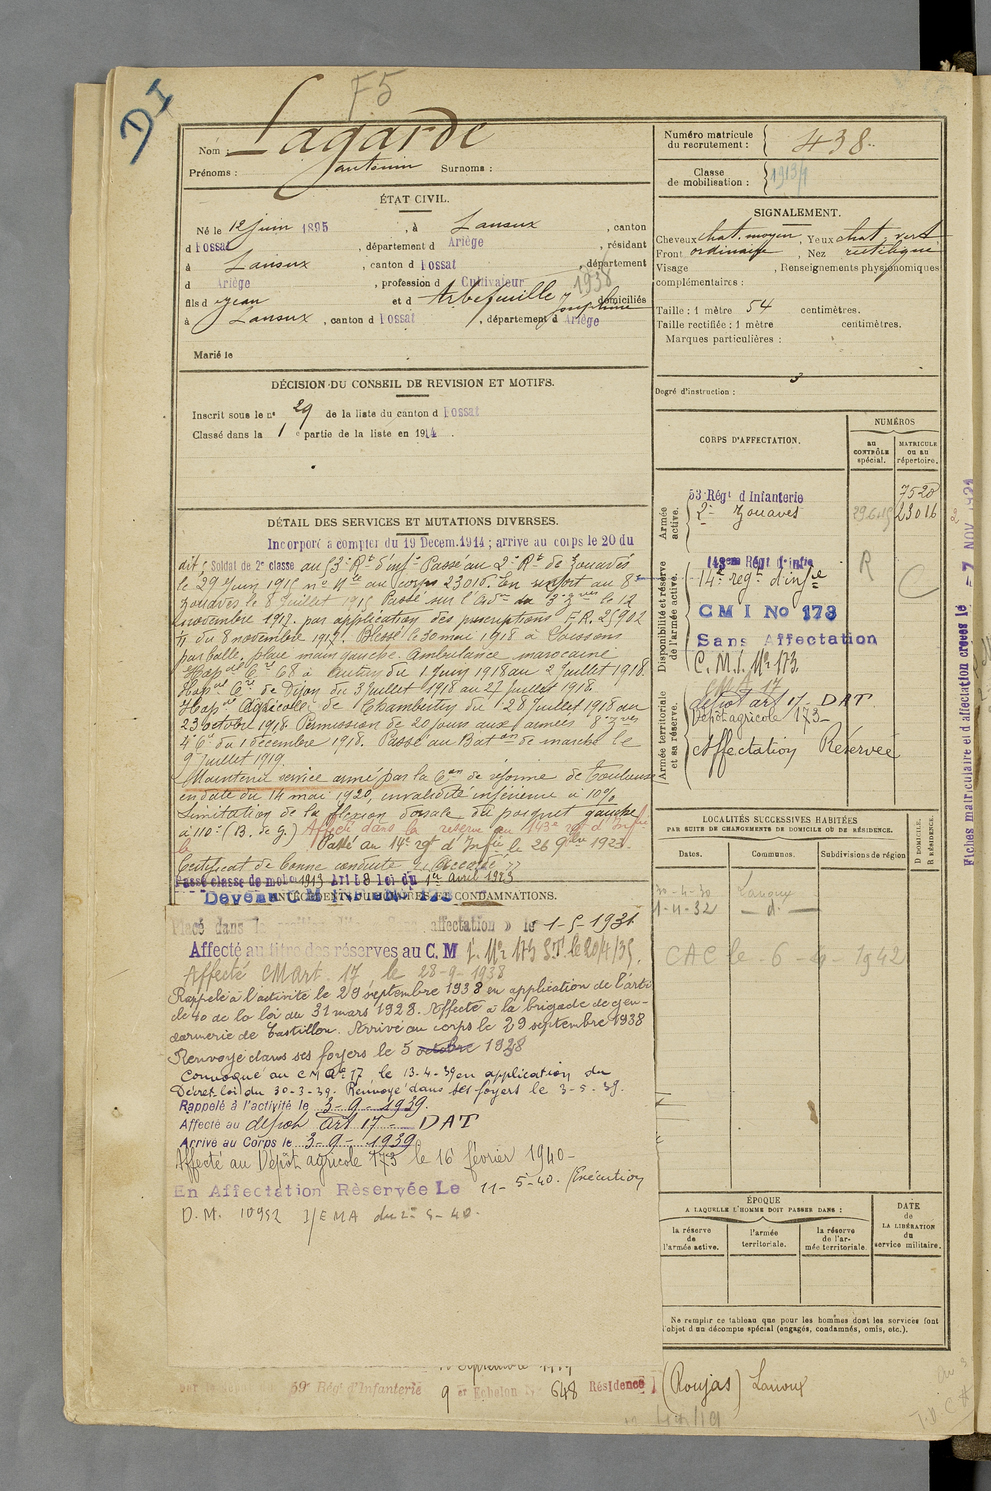 DI
F5
Nom : Lagarde
Prénoms : Surnoms :
ÉTAT CIVIL.
Né le 12 juin 1895, à Lanoux, canton
d Fossat, département d Ariège, résidant
à Lanoux, canton d Fossat, département
d Ariège, profession d Cultivateur
1938
fils d Jean et d Arbefeuille Joséphine domiciliés
à Lanoux, canton d Fossat, département d Ariège
Marié le
DÉCISION DU CONSEIL DE REVISION ET MOTIFS.
Inscrit sous le n° 29 de la liste du canton d Fossat
Classé dans la 1 e partie de la liste en 1914.
DÉTAIL DES SERVICES ET MUTATIONS DIVERSES.
Incorporé à compter du 19 Décem.1914 ; arrivé au corps le 20 du
dit, Soldat de 2e classe au 53e Rt d'infie Passé au 2e Rt de Zouaves
le 29 Juin 1915 no Mle au corps 23016. En renfort au 8e
zouaves le 8 Juillet 1915 Passé sur l'
novembre 1917. par application des prescriptions E.R. 25902
du 8 novembre 1917. Blessé le 30 mai 1918 à Soissons
par balle, plaie main gauche. Ambulance marocaine
du 1 Juin 1918 au 2 Juillet 1918.
de Dijon du 3 Juillet 1918 au 27 Juillet 1918
Agricole de Chambertin du 28 Juillet 1918 au
23 octobre 1918 Permission de 20 jours aux armées 8e zves
4e Cie du 1 décembre 1918. Passé au Baton de marche le
9 Juillet 1919.
Maintenu service armé par la Con de réforme de Toulouse
en date du 14 mai 1920, invalidité inférieure à 10%
Limitation de la flexion dorsale du poignet gauche
à 110° (B. de G.) Affecté dans la réserve au 143e rgt d'Infie
Passé au 14e rgt d'Infie le 26
Certificat de bonne conduite "Accordé"
Passé classe de mob. 1913 Art 58 loi du 1er avril 1923
CONDAMNATIONS.
Placé dans la affectation » le 1-5-1931
Affecté au titre des réserves au C. M I. No 173 S.T. le 20/4/35.
Affecté CMart. 17 le 28-9-1938
Rappelé à l'activité le 29 septembre 1938 en application de l'arti-
cle 40 de la loi du 31 mars 1928. Affecté à la brigade de gen-
darmerie de Castillon. Arrivé au corps le 29 septembre 1938
Renvoyé dans ses foyers le 5 octobre 1938
Convoqué au CMA no 17 le 13-4-39 en application du
Décret-loi du 30-3-39. Renvoyé dans ses foyers le 3-5-39.
Rappelé à l'activité le 3-9-1939.
Affecté au dépôt art 17 - DAT
Arrivé au Corps le 3-9-1939
Affecté au Dépôt agricole 173 le 16 février 1940-
En Affectation Réservée Le 11-5-40. (Exécution
D. M. 10952 I/EMA du 2-5-40.
59e Régt d'Infanterie 9 et Échelon 648 Résidence (Roujas) Lanoux
Numéro matricule
du recrutement : 438
Classe
de mobilisation :
SIGNALEMENT.
Cheveux chat. moyen, Yeux chat. vert
Front ordinaire, Nez rectiligne
Visage , Renseignements physionomiques
complémentaires :
Taille : 1 mètre 54 centimètres.
Taille rectifiée : 1 mètre centimètres.
Marques particulières :
Degré d'instruction : 3
CORPS D'AFFECTATION.
NUMÉROS
au CONTRÔLE spécial.
MATRICULE ou au répertoire.
Armée active.
53e Régt d Infanterie 7520
2e Zouaves 23016
Disponibilité et réserve de l'armée active.
143eme Régt d'infie R
14e régt d'infie
CMI No 173
Sans Affectation
C.M.I. No 173
Armée territoriale et sa réserve.
CMA 17
dépôt art 17- DAT
Dépôt agricole 173-
Affectation Réservée
Fiches matriculaire et d'affectation créées le - 7 NOV
LOCALITÉS SUCCESSIVES HABITÉES
PAR SUITE DE CHANGEMENTS DE DOMICILE OU DE RÉSIDENCE.
Dates. Communes. Subdivisions de région
D DOMICILE.
R RÉSIDENCE.
30-4-30 Lanoux
1-11-32 — d° —
CAC le 6 - 4 - 1942
ÉPOQUE
A LAQUELLE L'HOMME DOIT PASSER DANS :
la réserve de l'armée active.
l'armée territoriale.
la réserve de l'armée territoriale.
DATE DE LA LIBÉRATION du service militaire.
Ne remplir ce tableau que pour les hommes dont les services font
l'objet d'un décompte spécial (engagés, condamnés, omis, etc.).